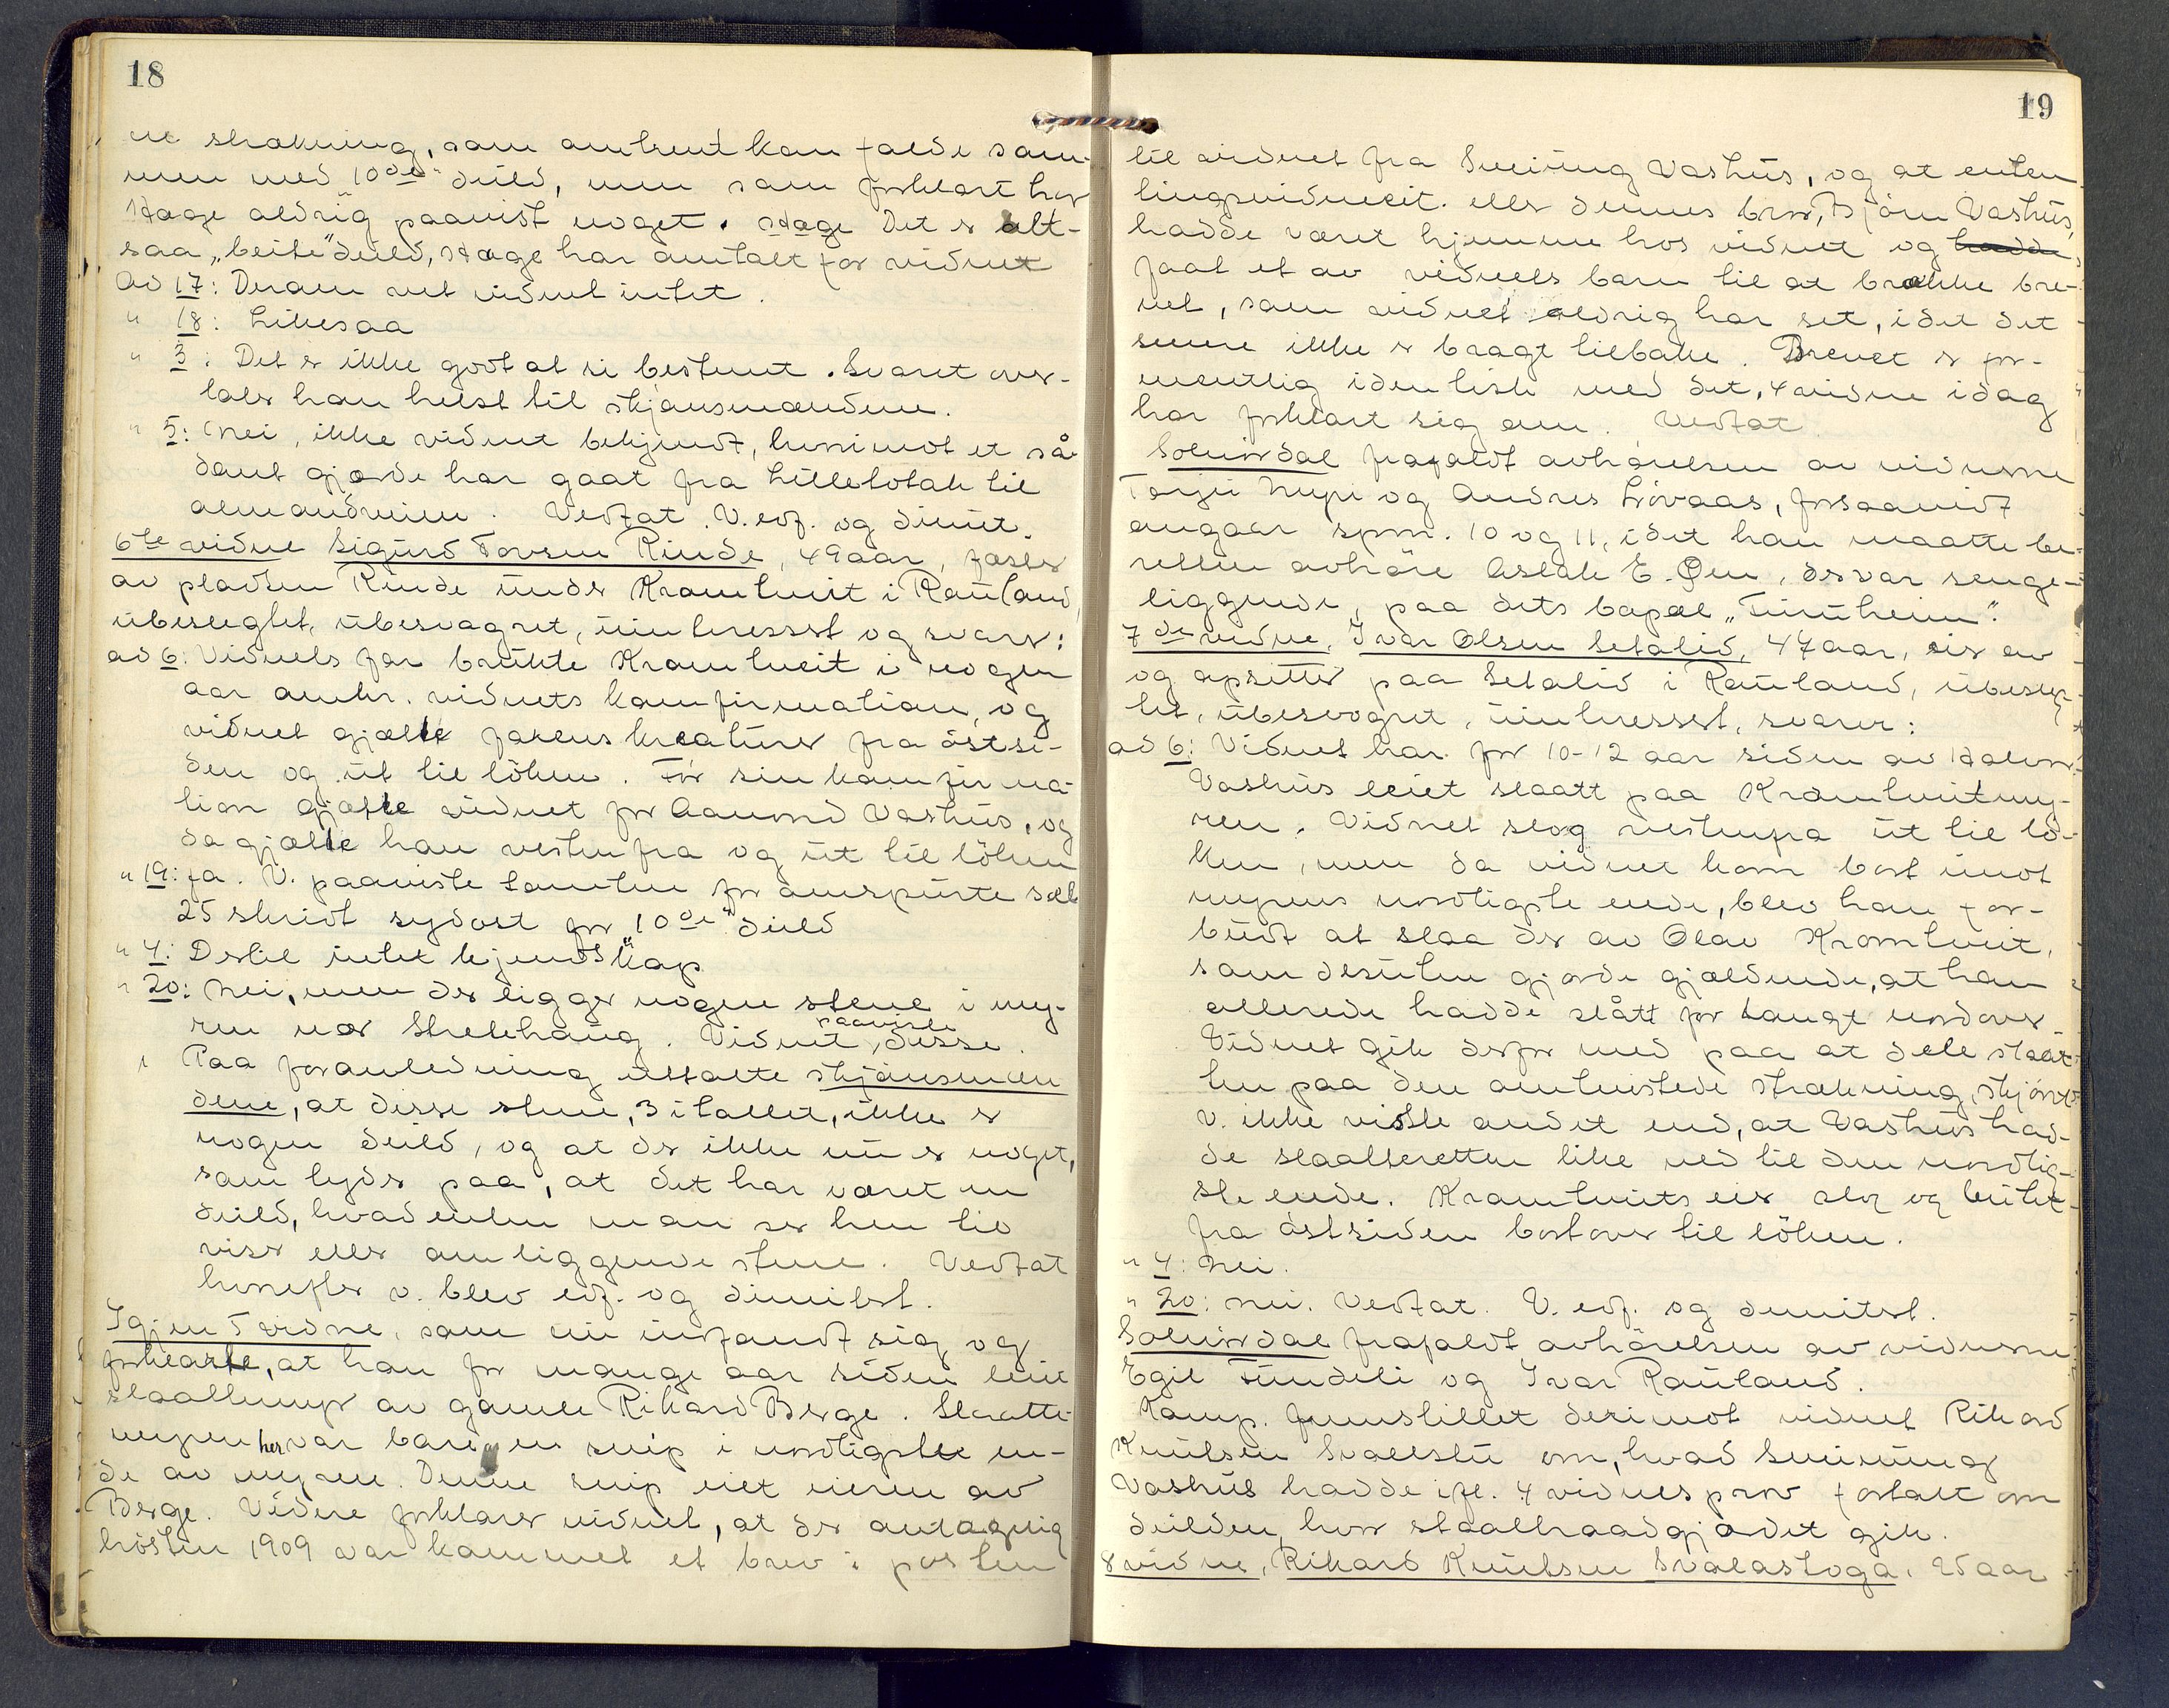 18
ne strækning, som omtrent kan falde sam-
men med 10de deild, men som forklart har
Hage aldrig paavist noget. Hage Det er alt-
saa „beite"deild, Hage har omtalt for vidnet
Ad 17: Derom vet vidnet intet.
" 18: Likesaa
" 3: Det er ikke godt at si bestemt. Svaret over-
later han helst til skjønsmændene.
" 5: Nei, ikke vidnet bekjendt, hvorimot et så-
dant gjærde har gaat fra Lilletotak til
almandveien. Vedtat. V. edf. og dimit.
6te vidne Sigurd Torsen Rinde, 49 aar, fæster
av pladsen Rinde under Kromtveit i Rauland,
ubeslegtet, ubesvogret, uinteressert og svarer:
ad 6: Vidnets far brukte Kromtveit i nogen
aar omkr. vidnets konfirmation, og
vidnet gjætte farens kreaturer fra østsi-
den og ut til løken. Før sin konfirma-
tion gjætte vidnet for Aamund Vashus, og
da gjætte han vestenfra og ut til løken
" 19: Ja. V. paaviste tomten for omspurte sæl
25 skridt sydost for "10de" deild
" 4: Dertil intet kjendskap
" 20: Nei, men der ligger nogen stene i my-
ren nær Strekhaug. Vidnet paaviste disse.
Paa foranledning uttalte skjønsmæn
dene, at disse stene, 3 i tallet, ikke er
nogen deild, og at der ikke nu er noget,
som tyder paa, at det har været en
deild, hvad enten man ser hen til
viser eller omliggende stene. Vedtat
hvorefter v. blev edf. og dimitert.
Igjen T vidne, som nu indfandt sig og
forklarte, at han for mange aar siden leiet
slaattemyr av gamle Rikard Berge. Slaatte-
myren her var bare en snip i nordligste en-
de av myren. Denne snip eiet eieren av
Berge. Videre forklarer vidnet, at der antagelig
høsten 1909 var kommet et brev i posten
19
til vidnet fra Sveinung Vashus, og at enten
lingsvidneit. eller dennes bror, Bjørn Vashus,
hadde været hjemme hos vidnet og hadde
faat et av vidnets barn til at brække bre-
vet, som vidnet aldrig har set, idet det
senere ikke er bragt tilbake. Brevet er for-
mentlig identisk med det, 4 vidne idag
har forklart sig om. Vedtat
Solvirdal frafaldt avhørelsen av vidnerne
Torjei Nupi og Andres Løvaas, forsaavidt
angaar spm. 10 og 11, idet han maatte be-
retten avhøre Aslak E. Øen, der var senge-
liggende, paa dets bopæl „Furuheim".
7de vidne, Ivar Olsen Setalid, 47 aar, eier av
og opsitter paa Setalid i Rauland, ubesleg-
tet, ubesvogret, uinteressert, svarer:
ad 6: Vidnet har for 10-12 aar siden av Halvor
Vashus leiet slaatt paa Kromtveitmy-
ren. Vidnet slog vestenfra ut til lø-
ken, men da vidnet kom bort imot
myrens nordligste ende, blev han for-
budt at slaa der av Olav Kromtveit,
som desuten gjorde gjældende, at han
allerede hadde slått for langt nordover
Vidnet gik derfor med paa at dele slaat-
ten paa den omtvistede strækning, skjønt
v. ikke visste andet end, at Vashus had-
de slaatteretten like ned til den nordlig-
ste ende. Kromtveits eier slog og beitet
fra østsiden bortover til løken.
" 4: Nei.
" 20: Nei. Vedtat. V. edf. og dimitert.
Solvirdal frafaldt avhørelsen av vidnerne
Egil Fundeli og Ivar Rauland.
Komp. fremstillet derimot vidnet Rikard
Knutsen Svalestu om, hvad Sveinung
Vashus hadde ifl. 4 vidnes prov fortalt om
deilden, hvor staaltraadgjærdet gik.
8 vidne, Rikard Knutsen Svalastoga. 25 aar